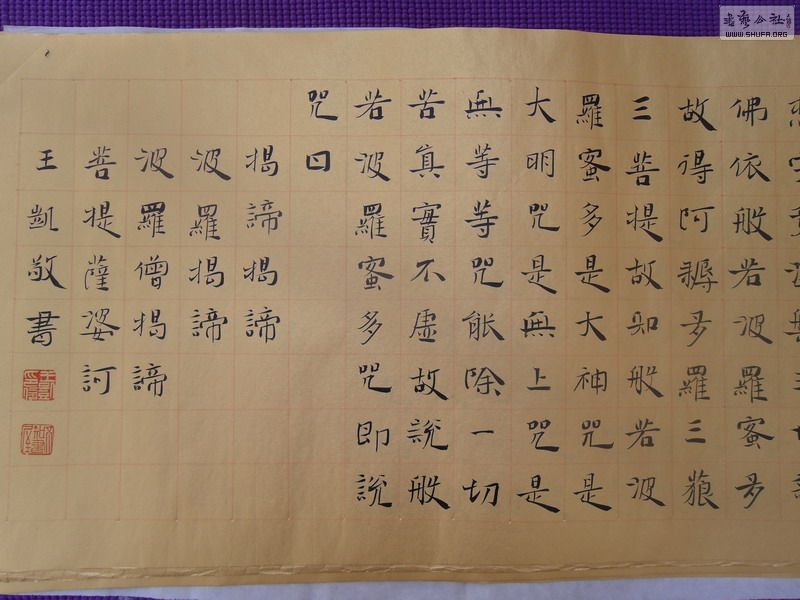 佛依般若波羅蜜多
故得阿耨多羅三藐
三菩提故知般若波
羅蜜多是大神咒是
大明咒是無上咒是
無等等咒能除一切
苦真實不虛故說般
若波羅蜜多咒即說
咒曰
揭諦揭諦
波羅揭諦
波羅僧揭諦
菩提薩婆訶
王凱敬書
書藝公社
WWW.SHUFA.ORG